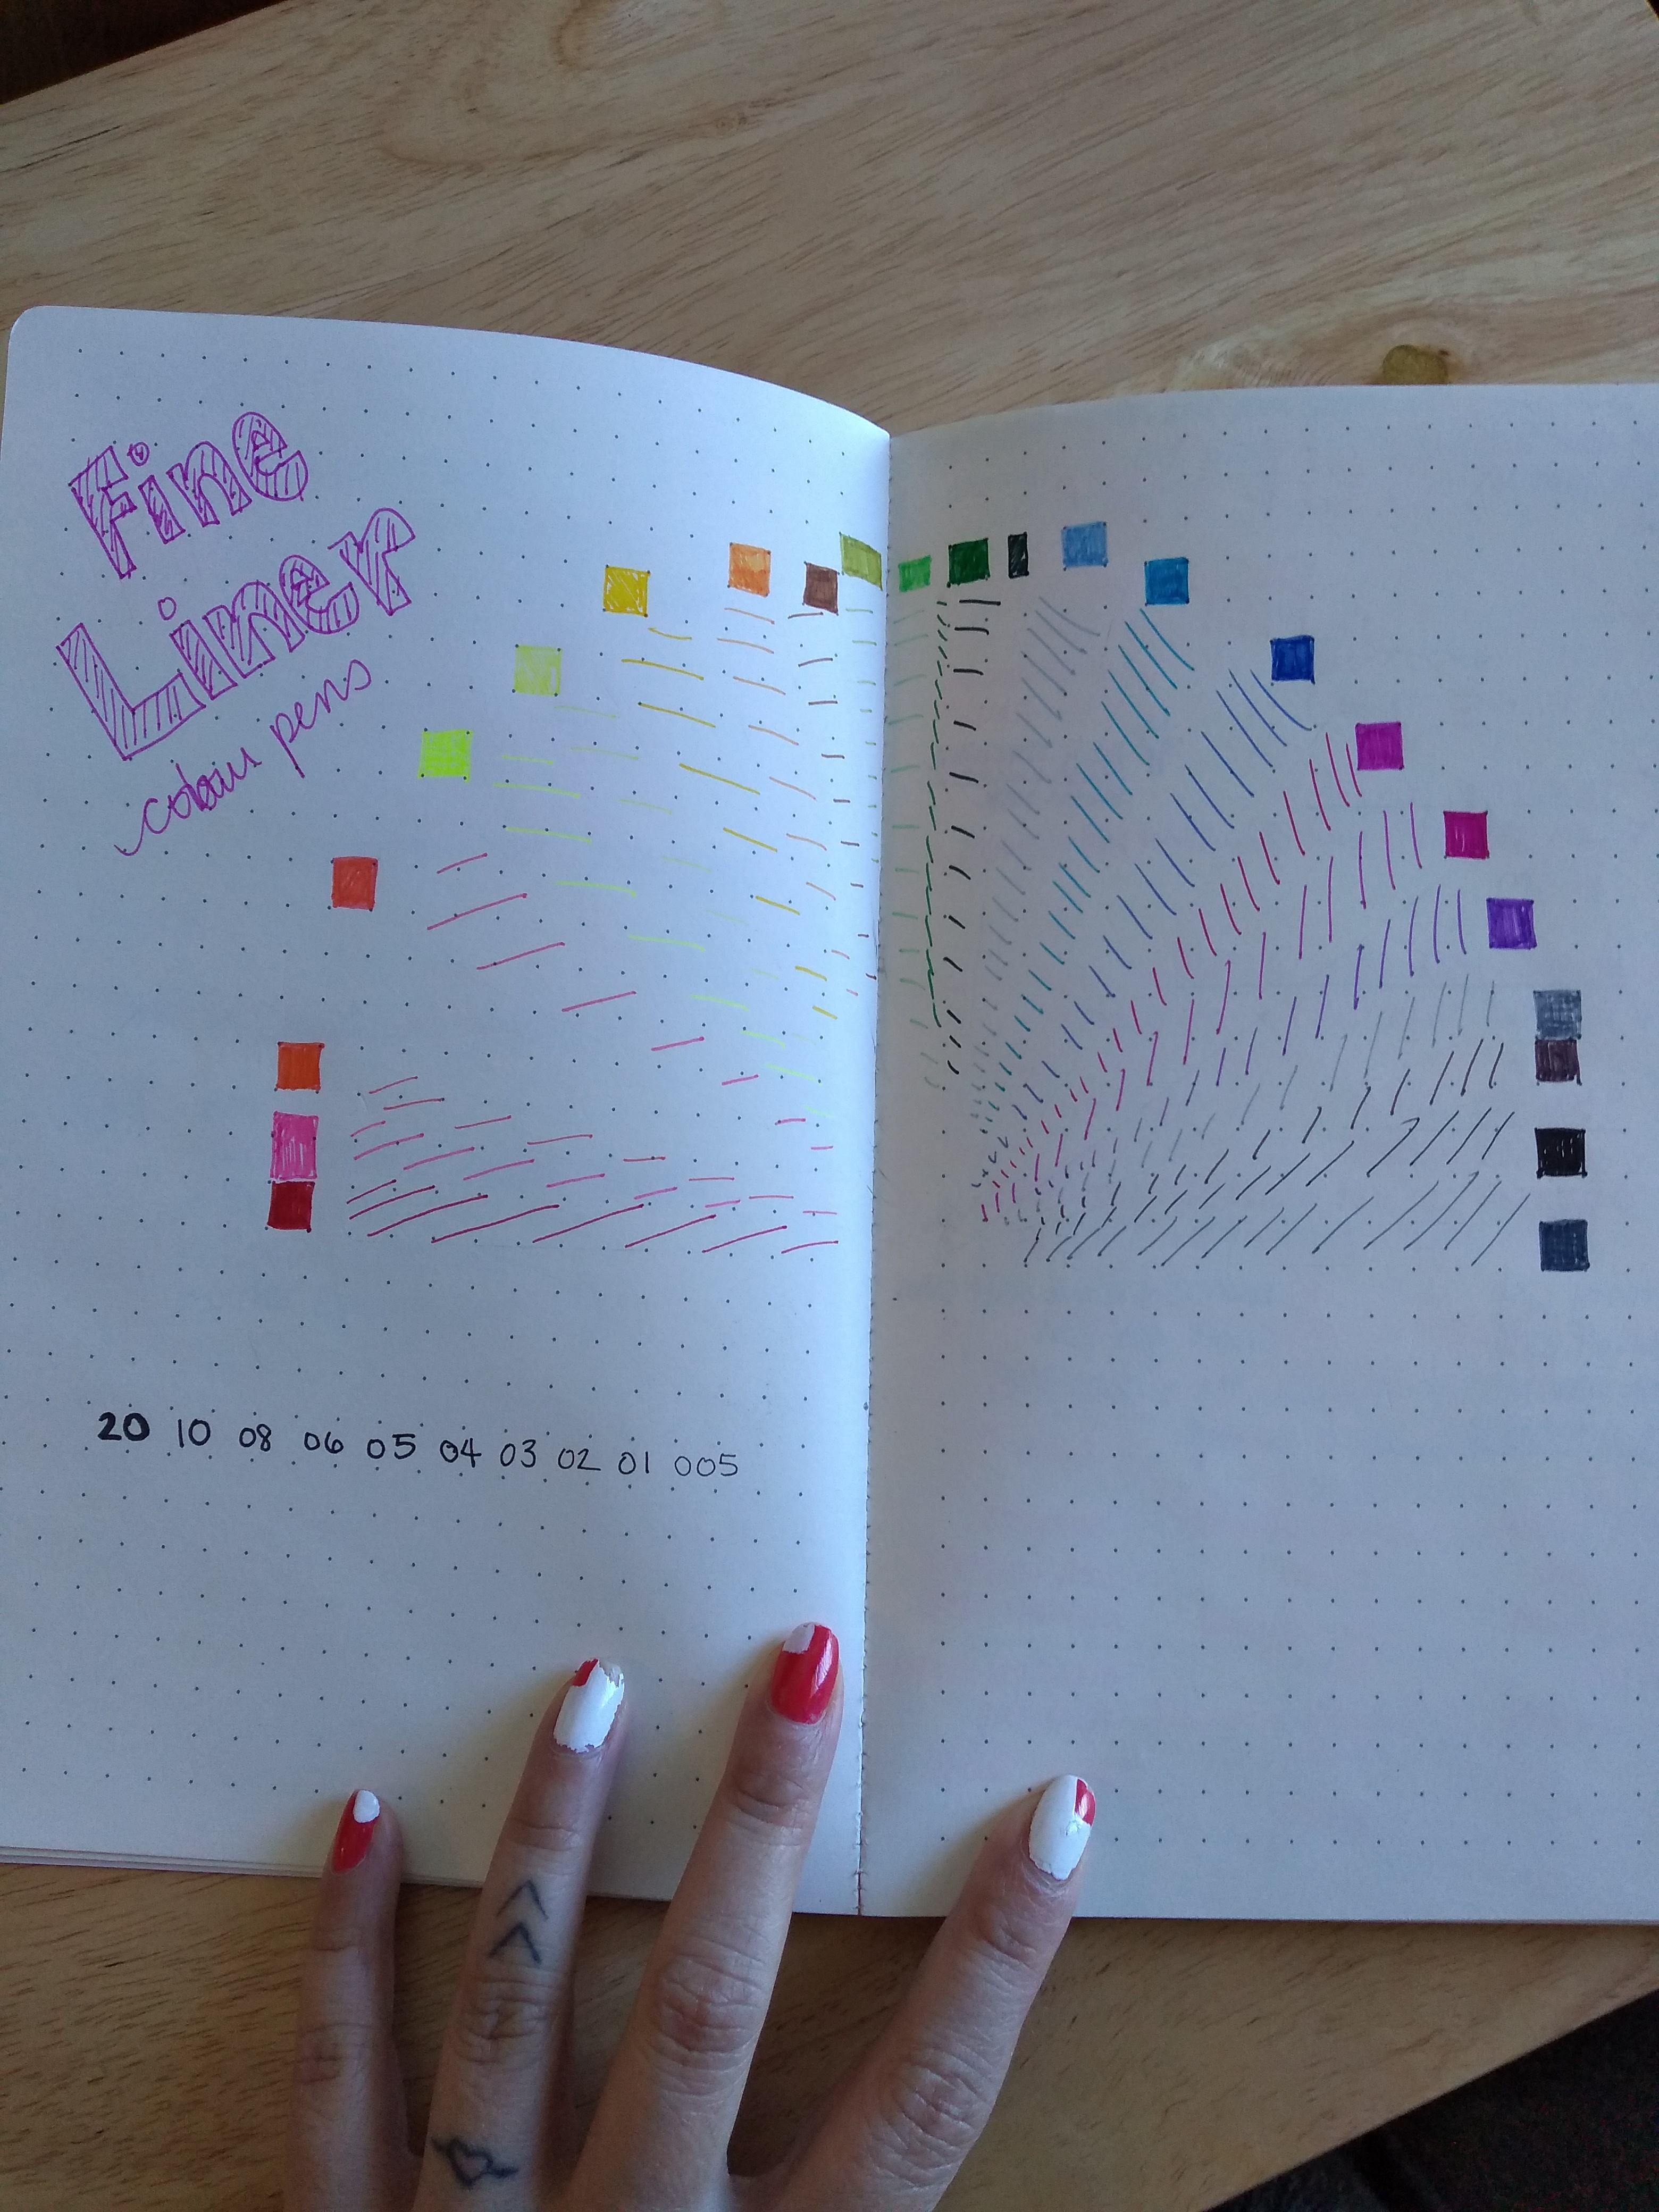 Fine
Liner
colour pens
20 10 08 06 05 04 03 02 01 005